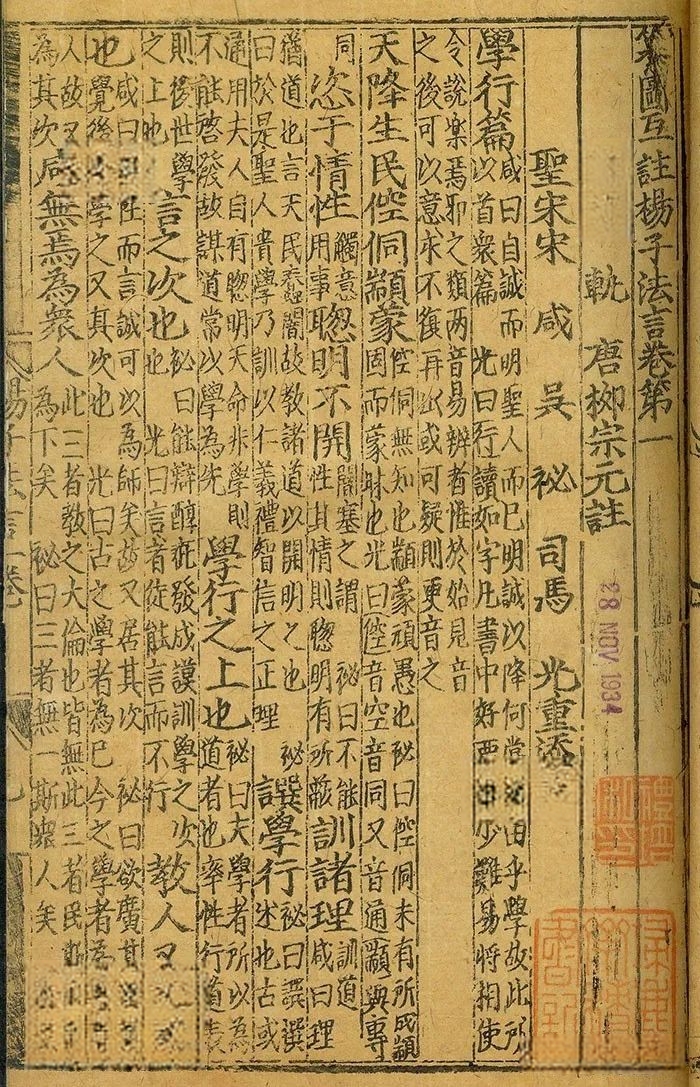 纂圖互註楊子法言卷第一
軌 唐柳宗元註
聖宋宋 咸 吳 祕 司馬 光重添
學行篇
咸曰自誠而明聖人而已明誠以降何嘗由乎學故此所
以首衆篇 光曰行讀如字凡書中好少難易將相使
令說樂焉邪之類兩音易辨者惟於始見音
之後可以意求不復再出或可疑則更音之
天降生民倥侗顓蒙
倥侗無知也顓蒙頑愚也祕曰倥侗未有所成顓
固而蒙昧也光曰倥音空音同又音通顓與專
同
恣于情性
觸意
用事
聰明不開
闇塞之謂 祕曰不能
性其情則聰明有所蔽
訓諸理
訓道
咸曰理
猶道也言天民蠢闇故教諸道以開明之也 祕
曰於是聖人貴學乃訓以仁義禮智信之正理
譔學行
祕曰譔撰
述也古或
通用夫人自有聰明天命非學則
不能啓發故謀道常以學為先
學行之上也
祕曰夫學者所以為
道者也率性行道表
則後世學
之上也
言之次也
祕曰能辯醇疵發成謨訓學之次
也 光曰言者徒能言而不行
教人又
也
咸曰性而言誠可以為師矣故又居其次 祕曰欲廣其
覺後學之又其次也 光曰古之學者為己今之學者為
人故又
為其次
咸無焉為衆人
此三者教之大倫也皆無此三者民
為下矣 祕曰三者無一斯衆人矣
楊子法言一卷
28 NOV. 1934